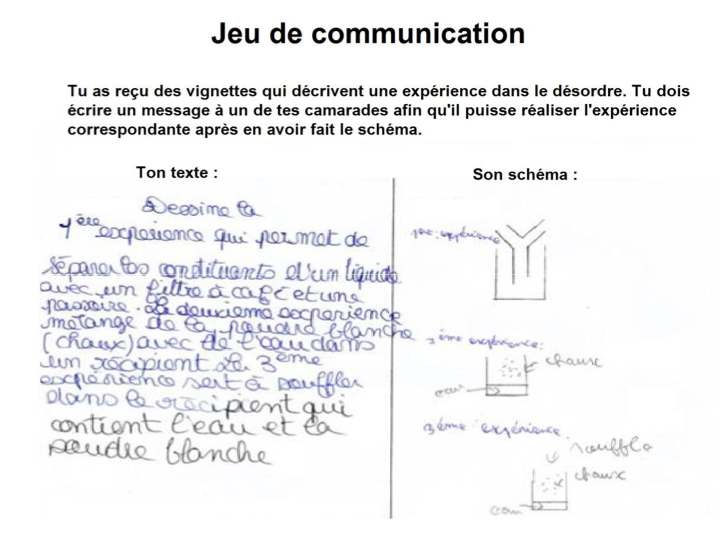 Jeu de communication
Tu as reçu des vignettes qui décrivent une expérience dans le désordre. Tu dois
écrire un message à un de tes camarades afin qu'il puisse réaliser l'expérience
correspondante après en avoir fait le schéma.
Ton texte :
Dessine la
1ère expérience qui permet de
séparer les constituants d'un liquide
avec un filtre à café et une
passoire. La deuxième expérience
mélange de la poudre blanche
(chaux) avec de l'eau dans
un récipient La 3ème
expérience sert à souffler
dans le récipient qui
contient l'eau et la
poudre blanche
Son schéma :
1ère expérience
ème expérience:
chaux
eau
3ème expérience
souffle
chaux
eau